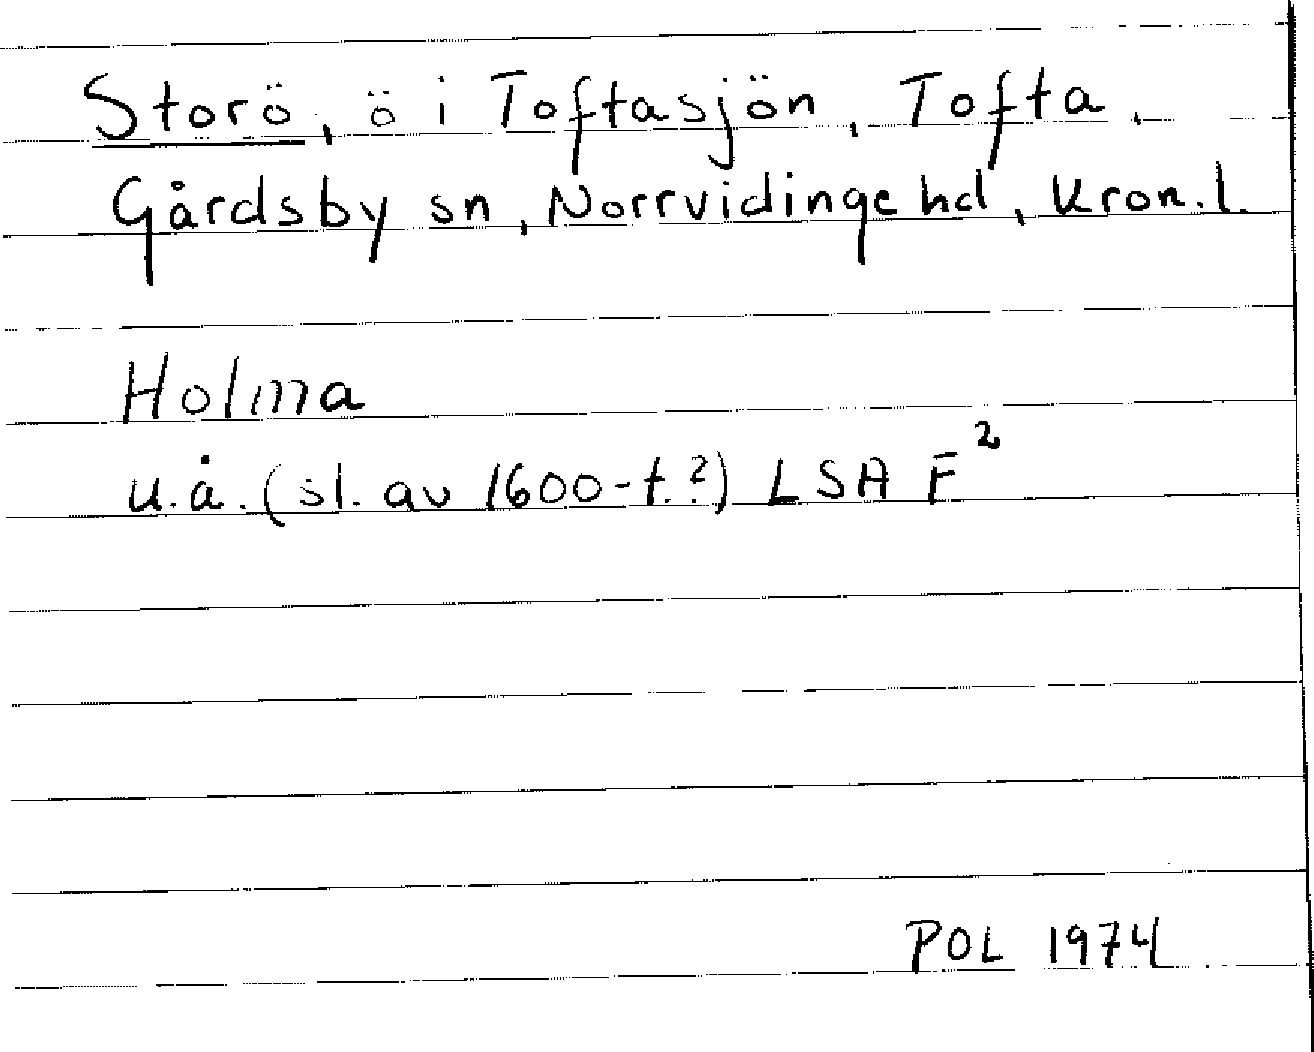 Storö, ö i Toftasjön, Tofta,
Gårdsby sn, Norrvidinge hd, Kron. l.
Holma
u.å. (sl. av 1600-t.?) LSA F²
POL 1974